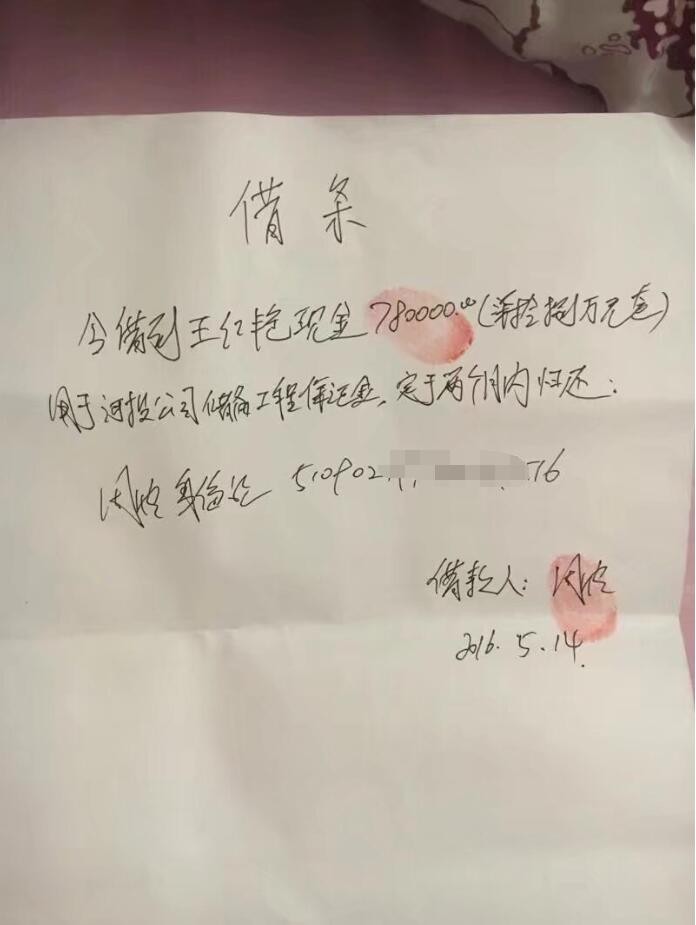 借条
今借到王红艳现金780000.00(柒拾捌万元整)
用于河投公司储备工程保证金,定于两个月内归还:
身份证 510902 76
借款人:
2016.5.14.